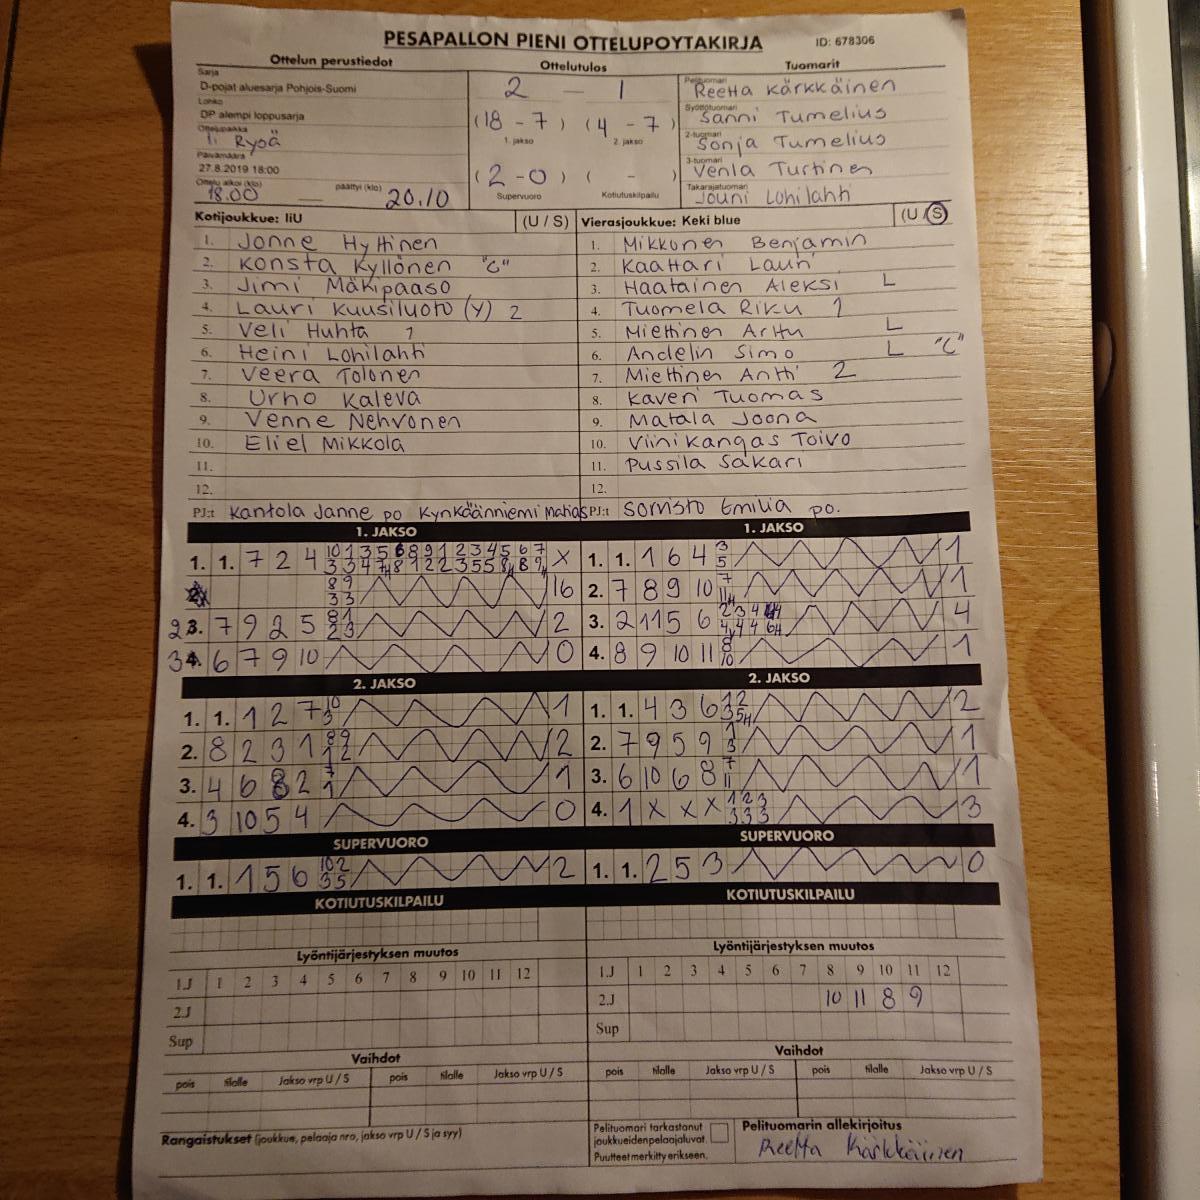 PESÄPALLON PIENI OTTELUPÖYTÄKIRJA ID: 678306
Ottelun perustiedot Ottelutulos Tuomarit
Sarja
D-pojat aluesarja Pohjois-Suomi
Lohko
DP alempi loppusarja
Ottelupaikka
Ii Rysä
Päivämäärä
27.8.2019 18:00
Ottelu alkoi (klo) päättyi (klo)
18.00 20.10
2 - 1
(18 - 7) (4 - 7)
1. jakso 2. jakso
(2 - 0) ( - )
Supervuoro Kotiutuskilpailu
Pelituomari
Reetta Kärkkäinen
Syöttötuomari
Sanni Tumelius
2-tuomari
Sonja Tumelius
3-tuomari
Venla Turtinen
Takarajatuomari
Jouni Lohilahti
Kotijoukkue: IiU (U / S) Vierasjoukkue: Keki blue (U / S)
1. Jonne Hyttinen 1. Mikkonen Benjamin
2. Konsta Kyllönen "C" 2. Kaattari Lauri
3. Jimi Mäkipaaso 3. Haatainen Aleksi L
4. Lauri Kuusiluoto (Y) 2 4. Tuomela Riku 1
5. Veli Huhta 1 5. Miettinen Arttu L
6. Heini Lohilahti 6. Andelin Simo L "C"
7. Veera Tolonen 7. Miettinen Antti 2
8. Urho Kaleva 8. Kaveri Tuomas
9. Venne Nehvonen 9. Matala Joona
10. Eliel Mikkola 10. Viinikangas Toivo
11. 11. Pussila Sakari
12. 12.
PJ:t Kantola Janne po Kynkäänniemi Matias PJ:t Sorristo Emilia po.
1. JAKSO 1. JAKSO
1. 1. 7 2 4 X 1. 1. 1 6 4 3 5 1
16 2. 7 8 9 10 1
2 3. 7 9 2 5 2 3. 2 11 5 6 4
3 4. 6 7 9 10 0 4. 8 9 10 11 8 10 1
2. JAKSO 2. JAKSO
1. 1. 1 2 7 10 3 1 1. 1. 4 3 6 2
2. 8 2 3 1 2 2. 7 9 5 9 1 3 1
3. 4 6 8 2 7 1 1 3. 6 10 6 8 7 11 1
4. 3 10 5 4 0 4. 1 X X X 1 2 3 3 3 3 3
SUPERVUORO SUPERVUORO
1. 1. 1 5 6 10 2 3 5 2 1. 1. 2 5 3 0
KOTIUTUSKILPAILU KOTIUTUSKILPAILU
Lyöntijärjestyksen muutos Lyöntijärjestyksen muutos
1.J 1 2 3 4 5 6 7 8 9 10 11 12 1.J 1 2 3 4 5 6 7 8 9 10 11 12
2.J 2.J 10 11 8 9
Sup Sup
Vaihdot Vaihdot
pois tilalle Jakso vrp U / S pois tilalle Jakso vrp U / S pois tilalle Jakso vrp U / S pois tilalle Jakso vrp U / S
Rangaistukset (joukkue, pelaaja nro, jakso vrp U / S ja syy)
Pelituomari tarkastanut
joukkueidenpelaajaluvat.
Puutteet merkitty erikseen.
Pelituomarin allekirjoitus
Reetta Kärkkäinen